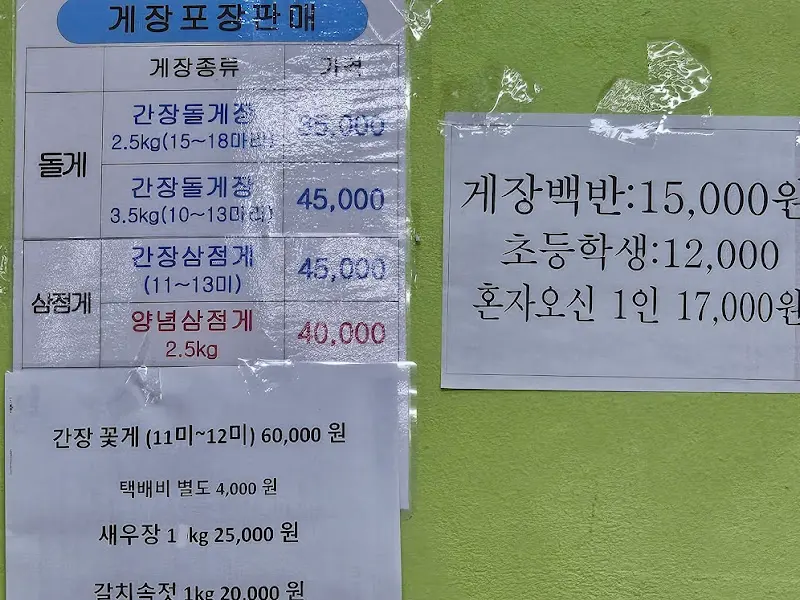 게장포장판매
게장종류 가격
돌게
간장돌게장 35,000
2.5kg(15~18마리)
간장돌게장 45,000
3.5kg(10~13마리)
삼점게
간장삼점게 45,000
(11~13미)
양념삼점게 40,000
2.5kg
간장 꽃게 (11미~12미) 60,000 원
택배비 별도 4,000 원
새우장 1 kg 25,000 원
갈치속젓 1kg 20,000 원
게장백반:15,000원
초등학생:12,000
혼자오신 1인 17,000원